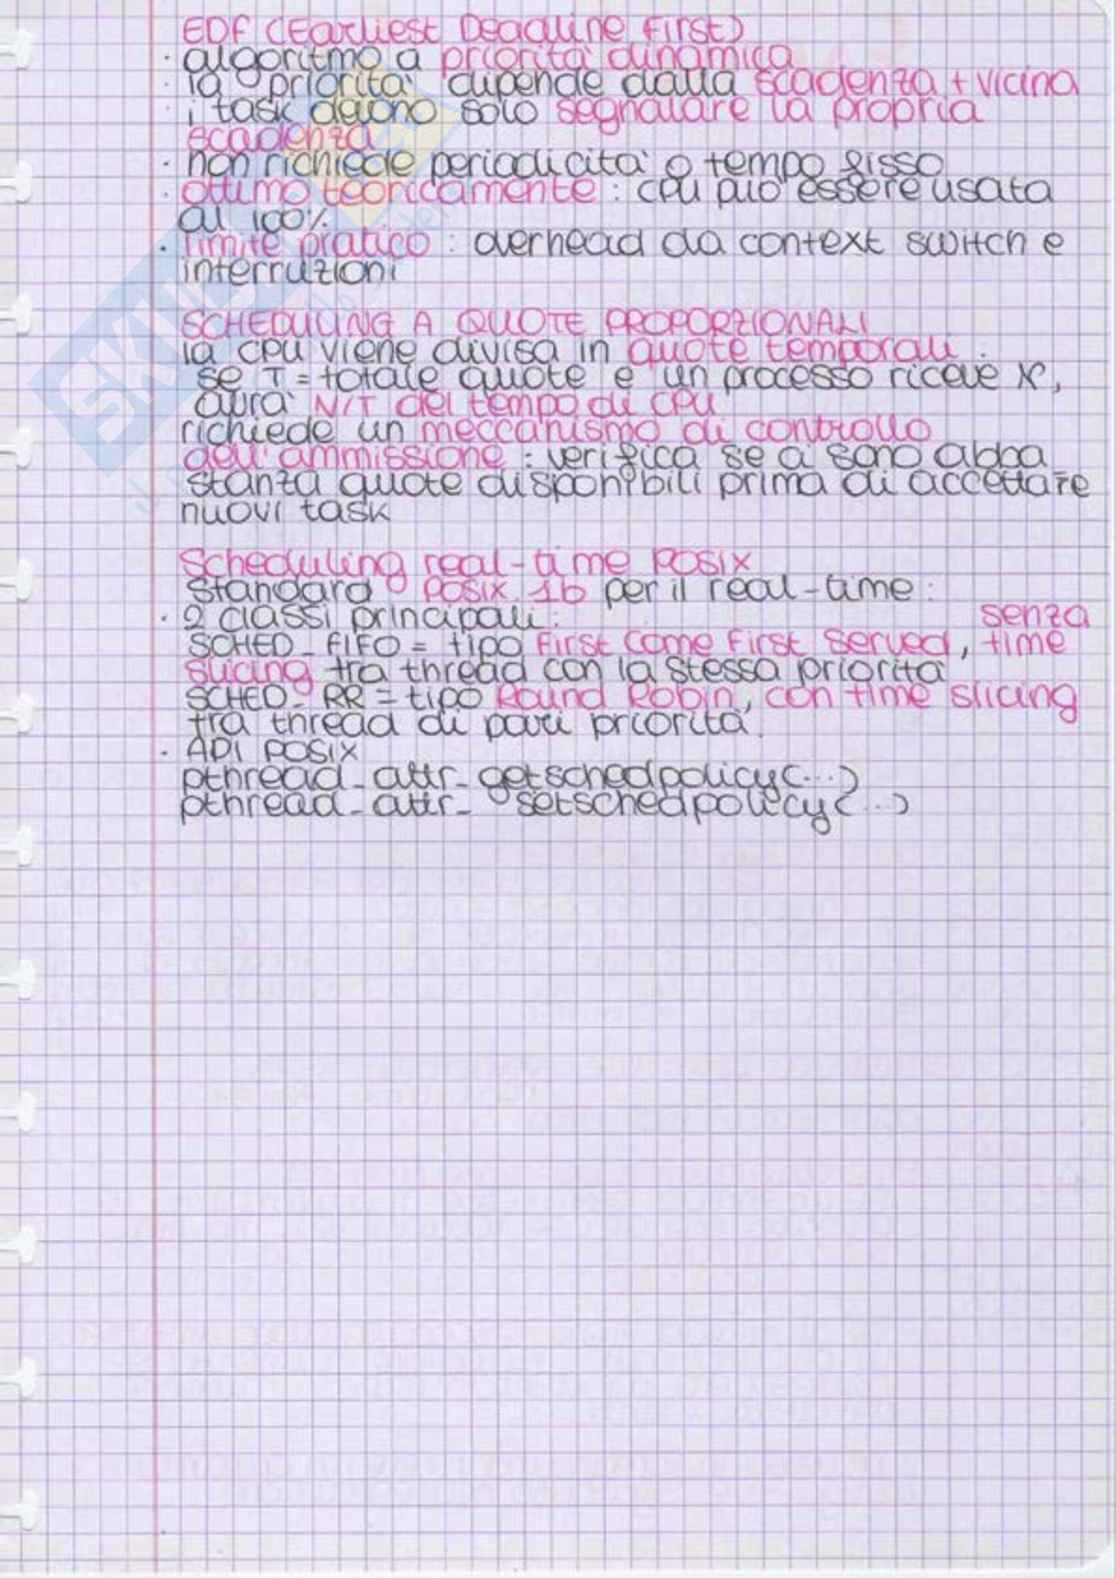 EDF (Earliest Deadline First)
· algoritmo a priorità dinamica
· la priorità dipende dalla scadenza + vicina
· i task devono solo segnalare la propria
scadenza
· non richiede periodicità o tempo fisso
· ottimo teoricamente : CPU può essere usata
al 100%
· limite pratico : overhead da context switch e
interruzioni
SCHEDULING A QUOTE PROPORZIONALI
la CPU viene divisa in quote temporali :
se T = totale quote e un processo riceve N,
avrà N/T del tempo di CPU
richiede un meccanismo di controllo
dell'ammissione : verifica se ci sono abba
stanza quote disponibili prima di accettare
nuovi task
Scheduling real-time POSIX
Standard POSIX.1b per il real-time:
· 2 classi principali:
SCHED_FIFO = tipo First Come First Served, senza time
slicing tra thread con la stessa priorità
SCHED_RR = tipo Round Robin, con time slicing
tra thread di pari priorità.
· API POSIX
pthread_attr_getschedpolicy(...)
pthread_attr_ setschedpolicy(...)